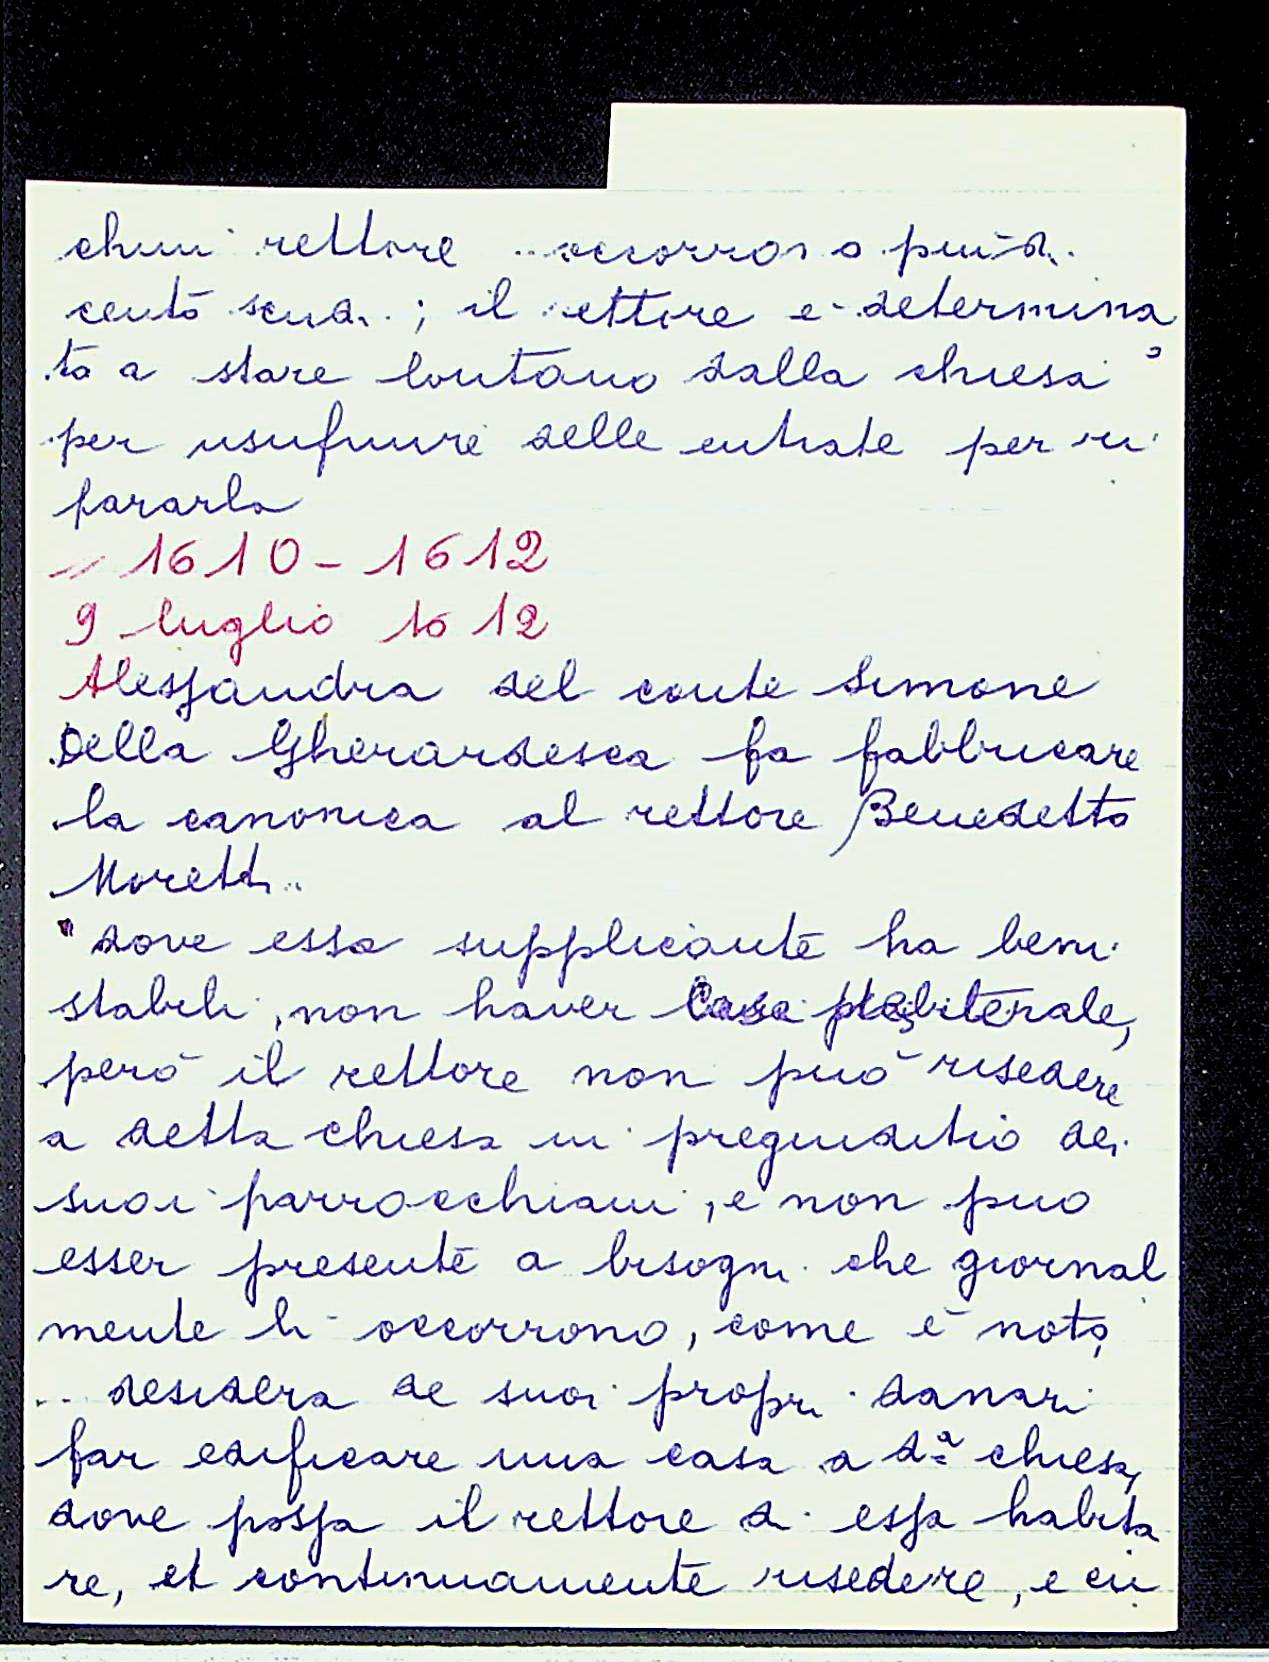 chini rettore .. occorrono più di
cento scudi ; il rettore è determina
to a stare lontano dalla chiesa
per usufruire delle entrate per ri
pararla
= 1610 - 1612
9 luglio 1612
Alessandra del conte Simone
Della Gherardesca fa fabbricare
la canonica al rettore Benedetto
Moretti..
" dove essa supplicante ha beni
stabili, non haver Casa presbiterale,
però il rettore non può risedere
a detta chiesa in pregiuditio dei
suoi parrocchiani, e non può
esser presente a bisogni che giornal
mente li occorrono, come è noto,
.. desidera de suoi propri danari
far edificare una casa a d.ª chiesa,
dove possa il rettore di essa habita
re, et continuamente risedere, e ciò